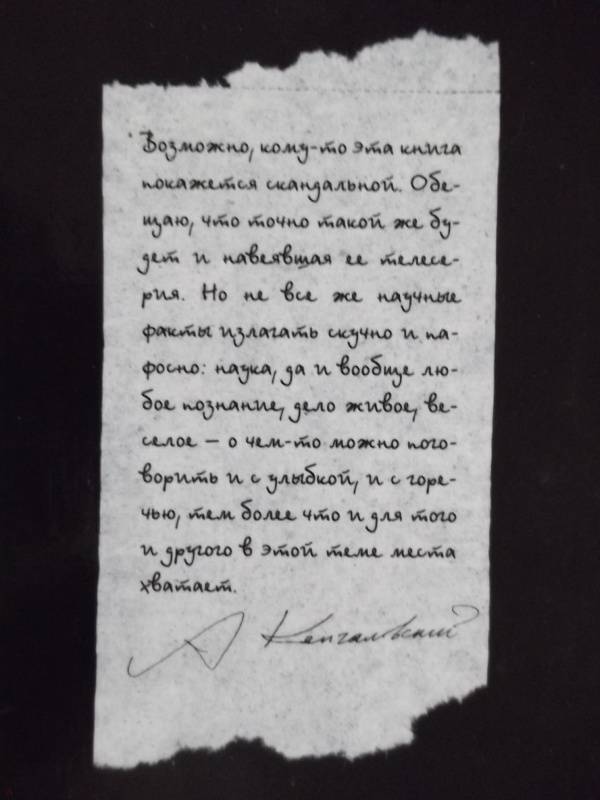 Возможно, кому-то эта книга
покажется скандальной. Обе-
щаю, что точно такой же бу-
дет и навеявшая ее телесе-
рия. Но не все же научные
факты излагать скучно и па-
фосно: наука, да и вообще лю-
бое познание, дело живое, ве-
селое – о чем-то можно пого-
ворить и с улыбкой, и с горе-
чью, тем более что и для того
и другого в этой теме места
хватает.
А